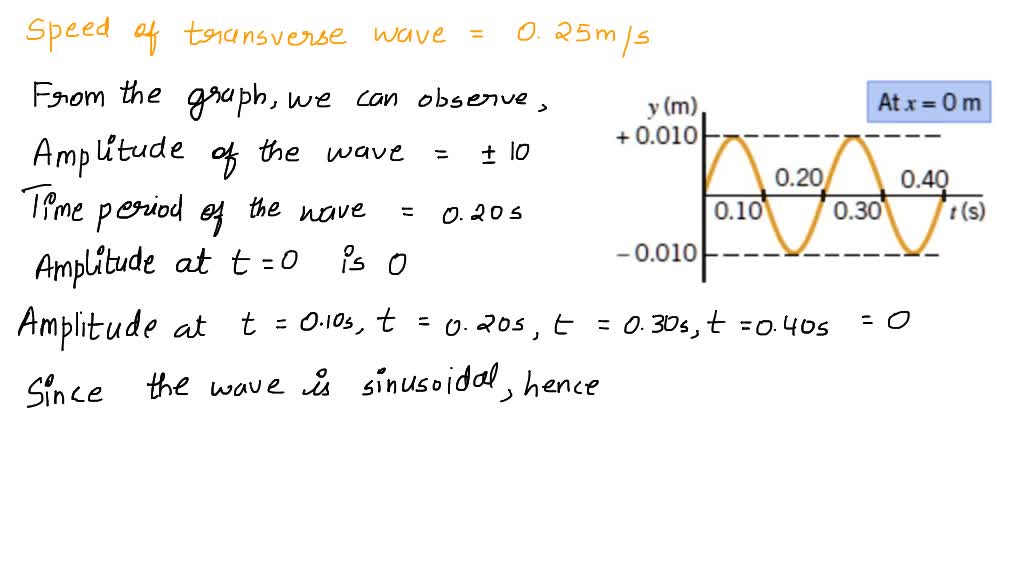 Speed of transverse wave = 0.25m/s
From the graph, we can observe,
Amplitude of the wave = ± 10
Time period of the wave = 0.20s
Amplitude at t = 0 is 0
Amplitude at t = 0.10s, t = 0.20s, t = 0.30s, t = 0.40s = 0
Since the wave is sinusoidal, hence
At x = 0 m
y (m)
+ 0.010
0.20
0.40
0.10
0.30
t (s)
− 0.010